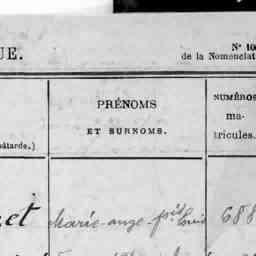 UE.
N° 10
de la Nomenclat
PRÉNOMS
ET SURNOMS.
NUMÉROS
ma-
tricules.
bâtarde.)
et Marie-ange-
Louis 688